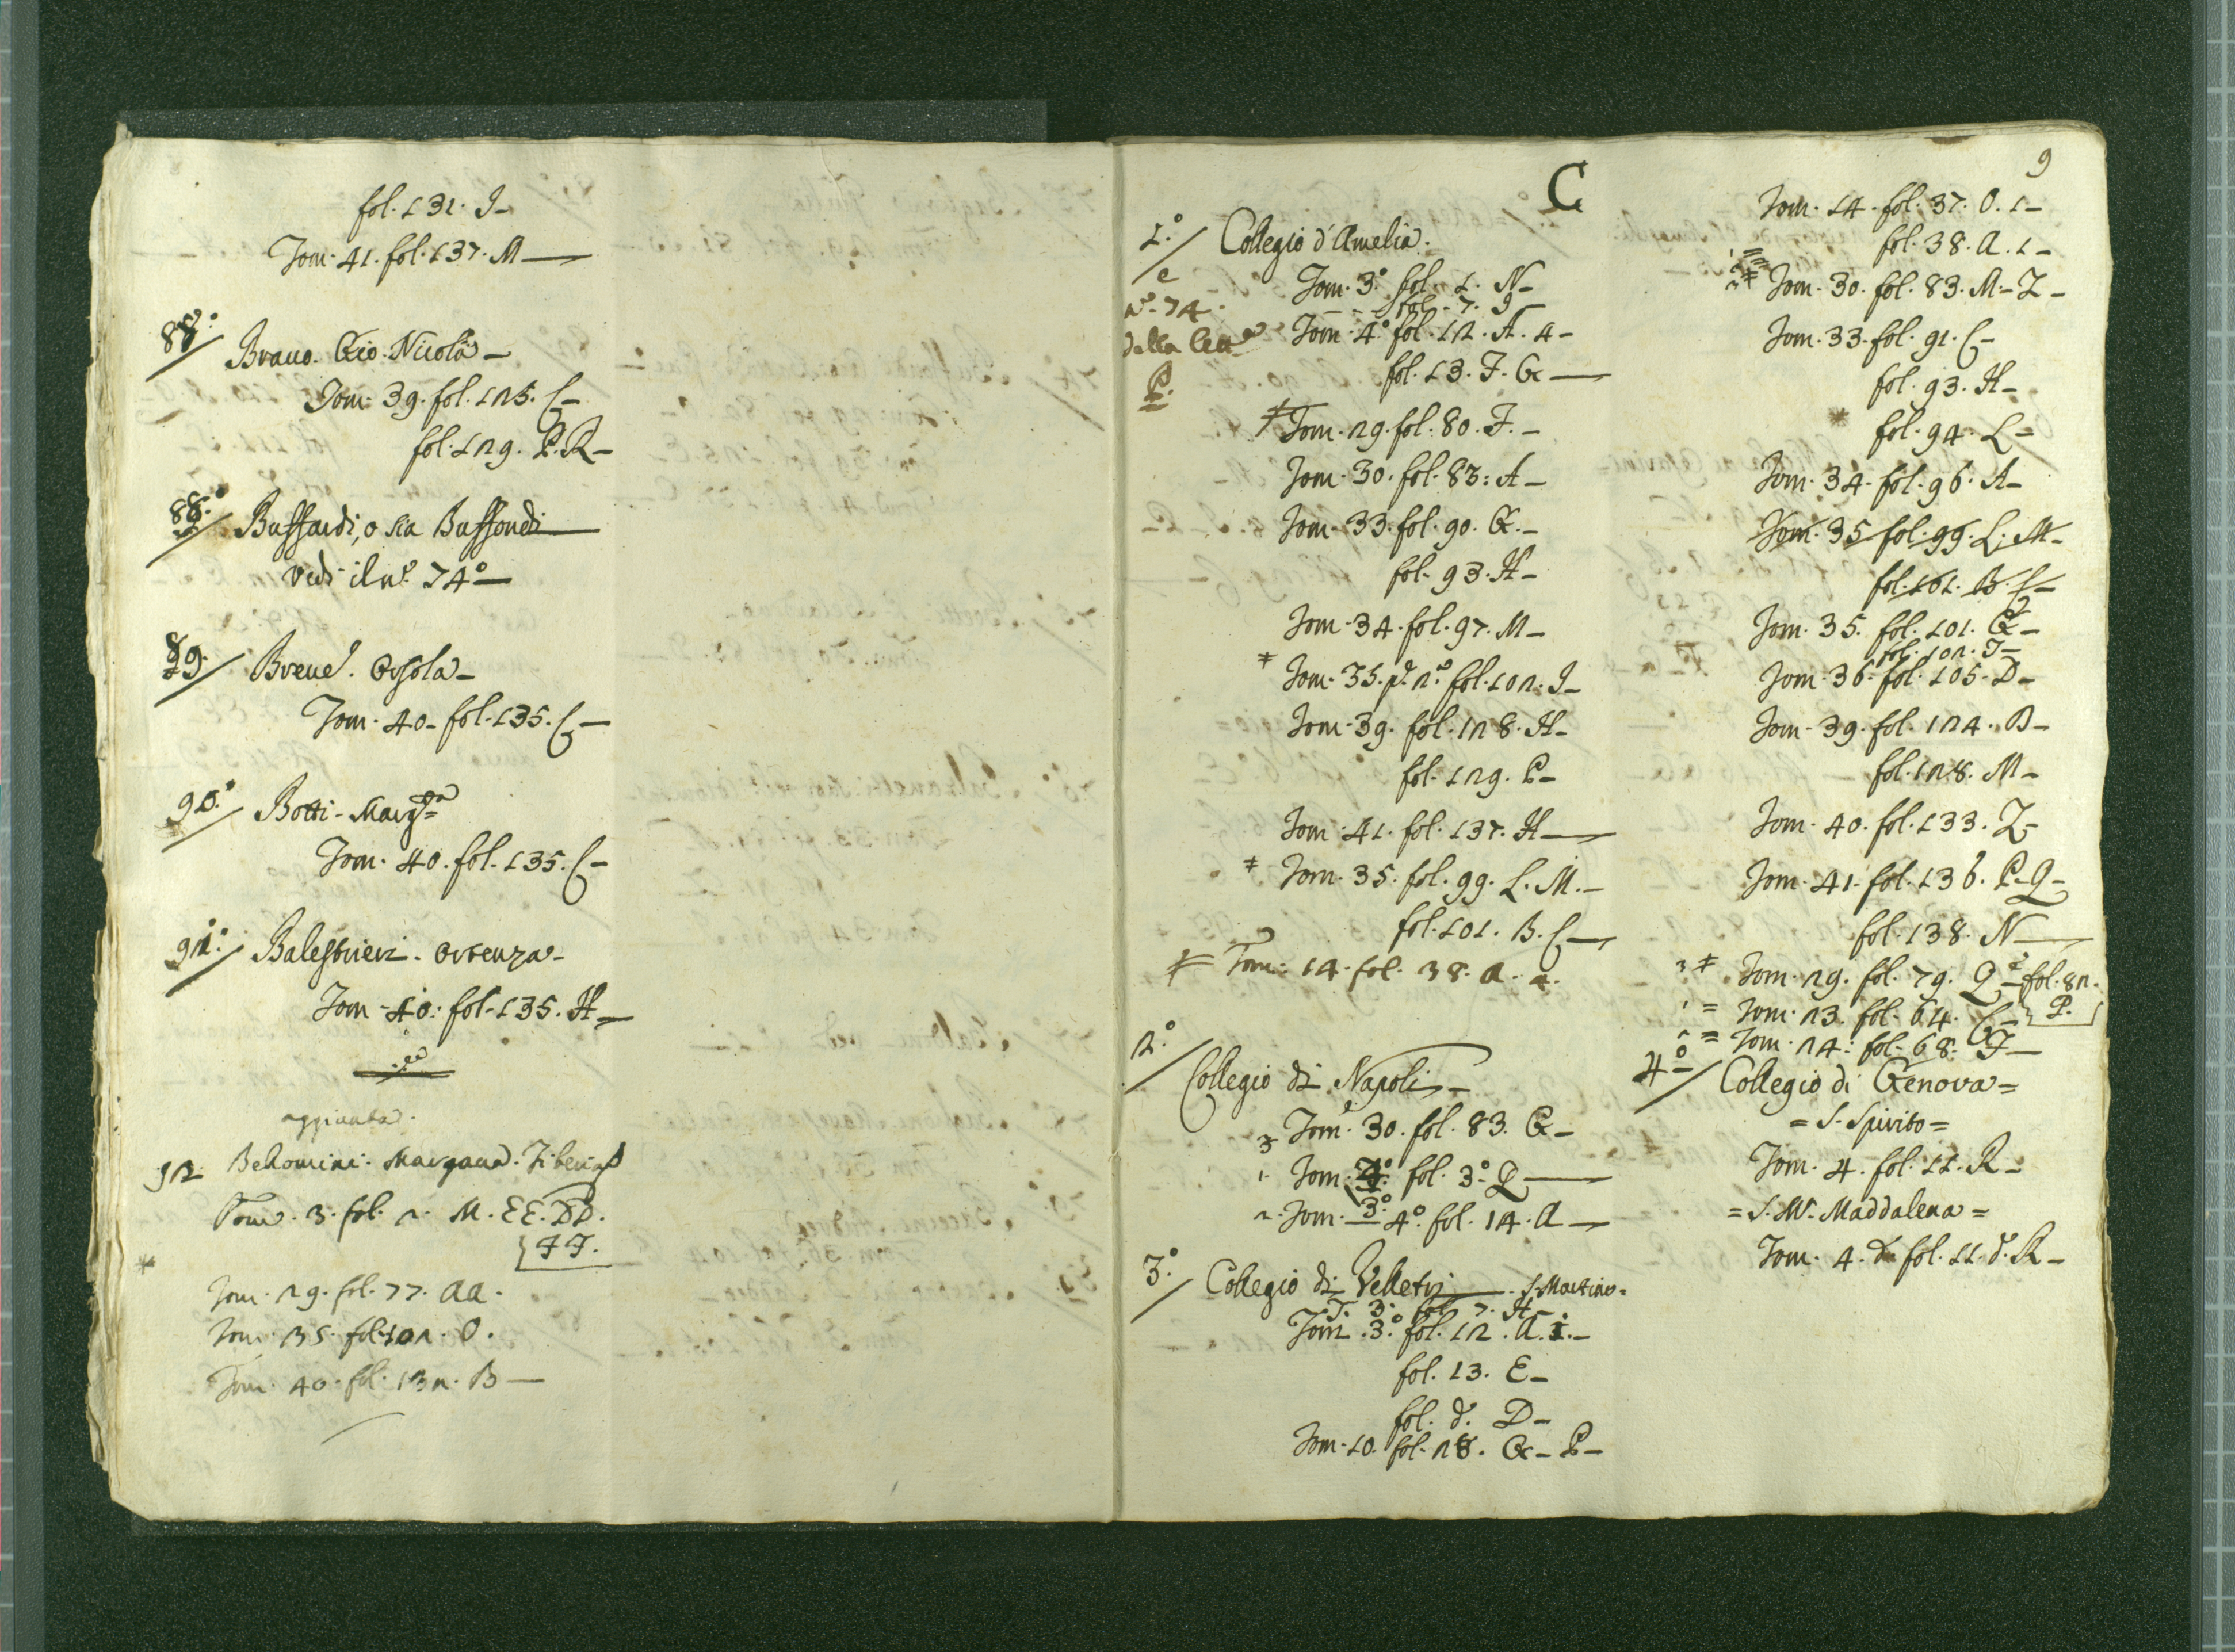 fol. 131. I-
Tom. 41. fol. 137. M —
88°./ Brauo. Gio. Nicola -
Tom. 39. fol. 125. C -
fol. 129. P. R -
88°./ Buffardi, o sia Buffondi
Vedi il n.° 74° —
89./ Breue. Orsola -
Tom. 40. fol. 135. C —
90°./ Botti - Marg.ta
Tom. 40. fol. 135. C -
91°./ Balestrieri. Ortenza -
Tom. 40. fol. 135. H —
aggiunta.
92 Bellomini. Margana. Tiberia
Tom. 3. fol. 2. M. EE. DD.
FF.
Tom. 29. fol. 77. aa.
Tom. 35. fol. 102. O.
Tom. 40. fol. 132. B —
C
1°./ Collegio d'Amelia.
e
n.° 74.
della lett.a
P.
Tom. 3° fol. 1. N -
fol. 7. 9 -
Tom. 4° fol. 12. A. 4 -
fol. 13. F. G —
Tom. 29. fol. 80. F. -
Tom. 30. fol. 83. A -
Tom. 33. fol. 90. G. -
fol. 93. H -
Tom. 34. fol. 97. M -
Tom. 35. p. 2.° fol. 102. I -
Tom. 39. fol. 128. H -
fol. 129. P -
Tom. 41. fol. 137. H —
Tom. 35. fol. 99. L. M. -
fol. 101. B. C —
Tom. 14. fol. 38. a. 2.
2°./ Collegio di Napoli -
3 Tom. 30. fol. 83. G -
1. Tom. 3° fol. 3° Q —
2. Tom. 4° fol. 14. A —
3°./ Collegio di Velletri — S. Martino =
T. 3. fol. 7. H -
Tom. 3° fol. 12. A. 1. -
fol. 13. E -
fol. d.° D -
Tom. 10. fol. 28. G - P -
9
Tom. 14. fol. 37. O. 1 -
fol. 38. A. 1 -
Tom. 30. fol. 83. M - Z -
Tom. 33. fol. 91. C -
fol. 93. H -
fol. 94. L -
Tom. 34. fol. 96. A -
Tom. 35 fol. 99. L. M -
fol. 101. B. C -
Tom. 35. fol. 101. G -
fol. 102. I -
Tom. 36. fol. 105. D -
Tom. 39. fol. 124. B -
fol. 128. M -
Tom. 40. fol. 133. Z -
Tom. 41. fol. 136. P - Q -
fol. 138. N —
3 Tom. 29. fol. 79. Q - fol. 82.
P.
1 = Tom. 23. fol. 64. C -
2 = Tom. 24. fol. 68. F —
4°/ Collegio di Genova =
= S. Spirito =
Tom. 4. fol. 11. R -
= S. M. Maddalena =
Tom. 4. fol. 11. d.° R -